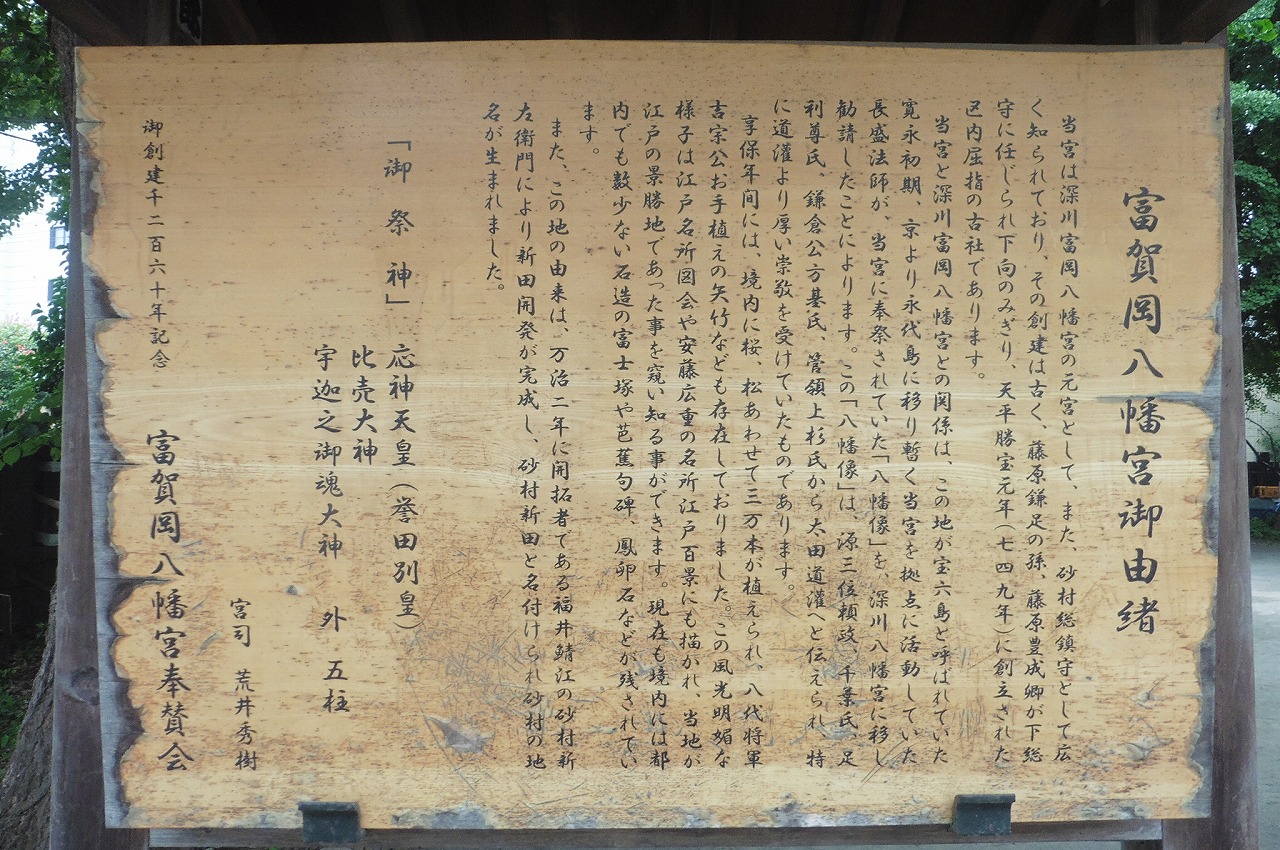 富賀岡八幡宮御由緒
当宮は深川富岡八幡宮の元宮として、また、砂村総鎮守として広
く知られており、その創建は古く、藤原鎌足の孫、藤原豊成卿が下総
守に任じられ下向のみぎり、天平勝宝元年(七四九年)に創立された
区内屈指の古社であります。
当宮と深川富岡八幡宮との関係は、この地が宝六島と呼ばれていた
寛永初期、京より永代島に移り暫く当宮を拠点に活動していた
長盛法師が、当宮に奉祭されていた「八幡像」を、深川八幡宮に移し
勧請したことによります。この「八幡像」は、源三位頼政、千葉氏、足
利尊氏、鎌倉公方基氏、管領上杉氏から太田道灌へと伝えられ、特
に道灌より厚い崇敬を受けていたものであります。
享保年間には、境内に桜、松あわせて三万本が植えられ、八代将軍
吉宗公お手植えの矢竹なども存在しておりました。この風光明媚な
様子は江戸名所図会や安藤広重の名所江戸百景にも描かれ、当地が
江戸の景勝地であった事を窺い知る事ができます。現在も境内には都
内でも数少ない石造の富士塚や芭蕉句碑、鳳卵石などが残されてい
ます。
また、この地の由来は、万治二年に開拓者である福井鯖江の砂村新
左衛門により新田開発が完成し、砂村新田と名付けられ砂村の地
名が生まれました。
「御祭神」 応神天皇(誉田別皇)
比売大神
宇迦之御魂大神 外 五柱
宮司 荒井秀樹
御創建千二百六十年記念 富賀岡八幡宮奉賛会